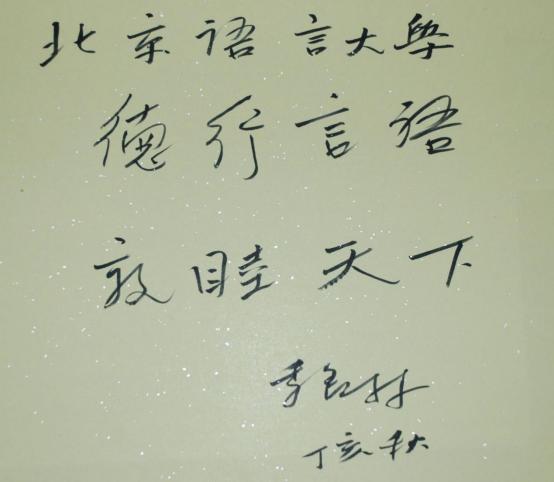 北京语言大學
德行言语
敦睦天下
季羡林
丁亥秋